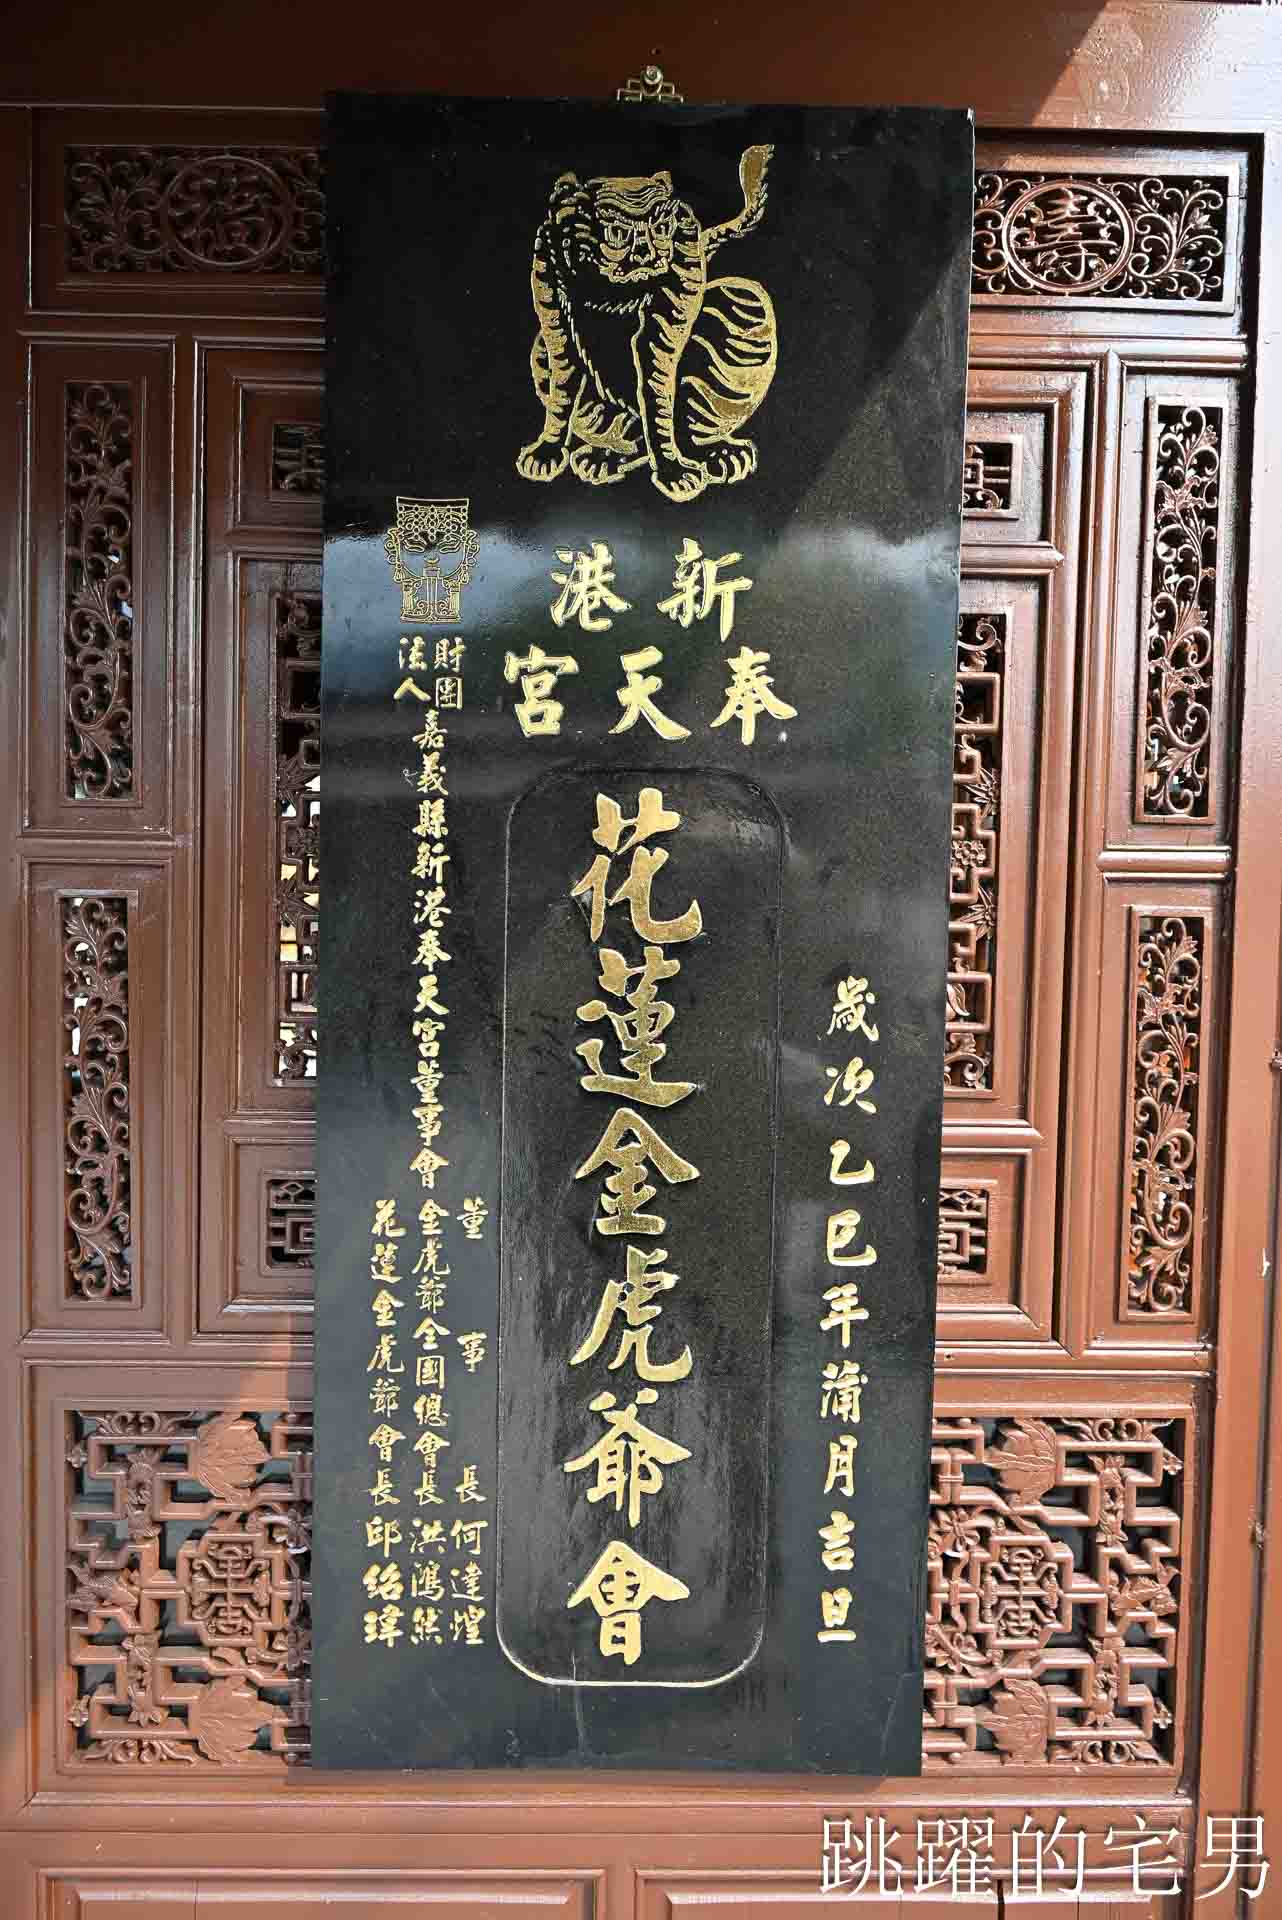 新港
奉天宮
歲次乙巳年蒲月吉旦
花蓮金虎爺會
財團法人嘉義縣新港奉天宮董事會
董事長何達煌
金虎爺全國總會長洪鴻然
花蓮金虎爺會長邱紹瑋
福
壽
跳躍的宅男